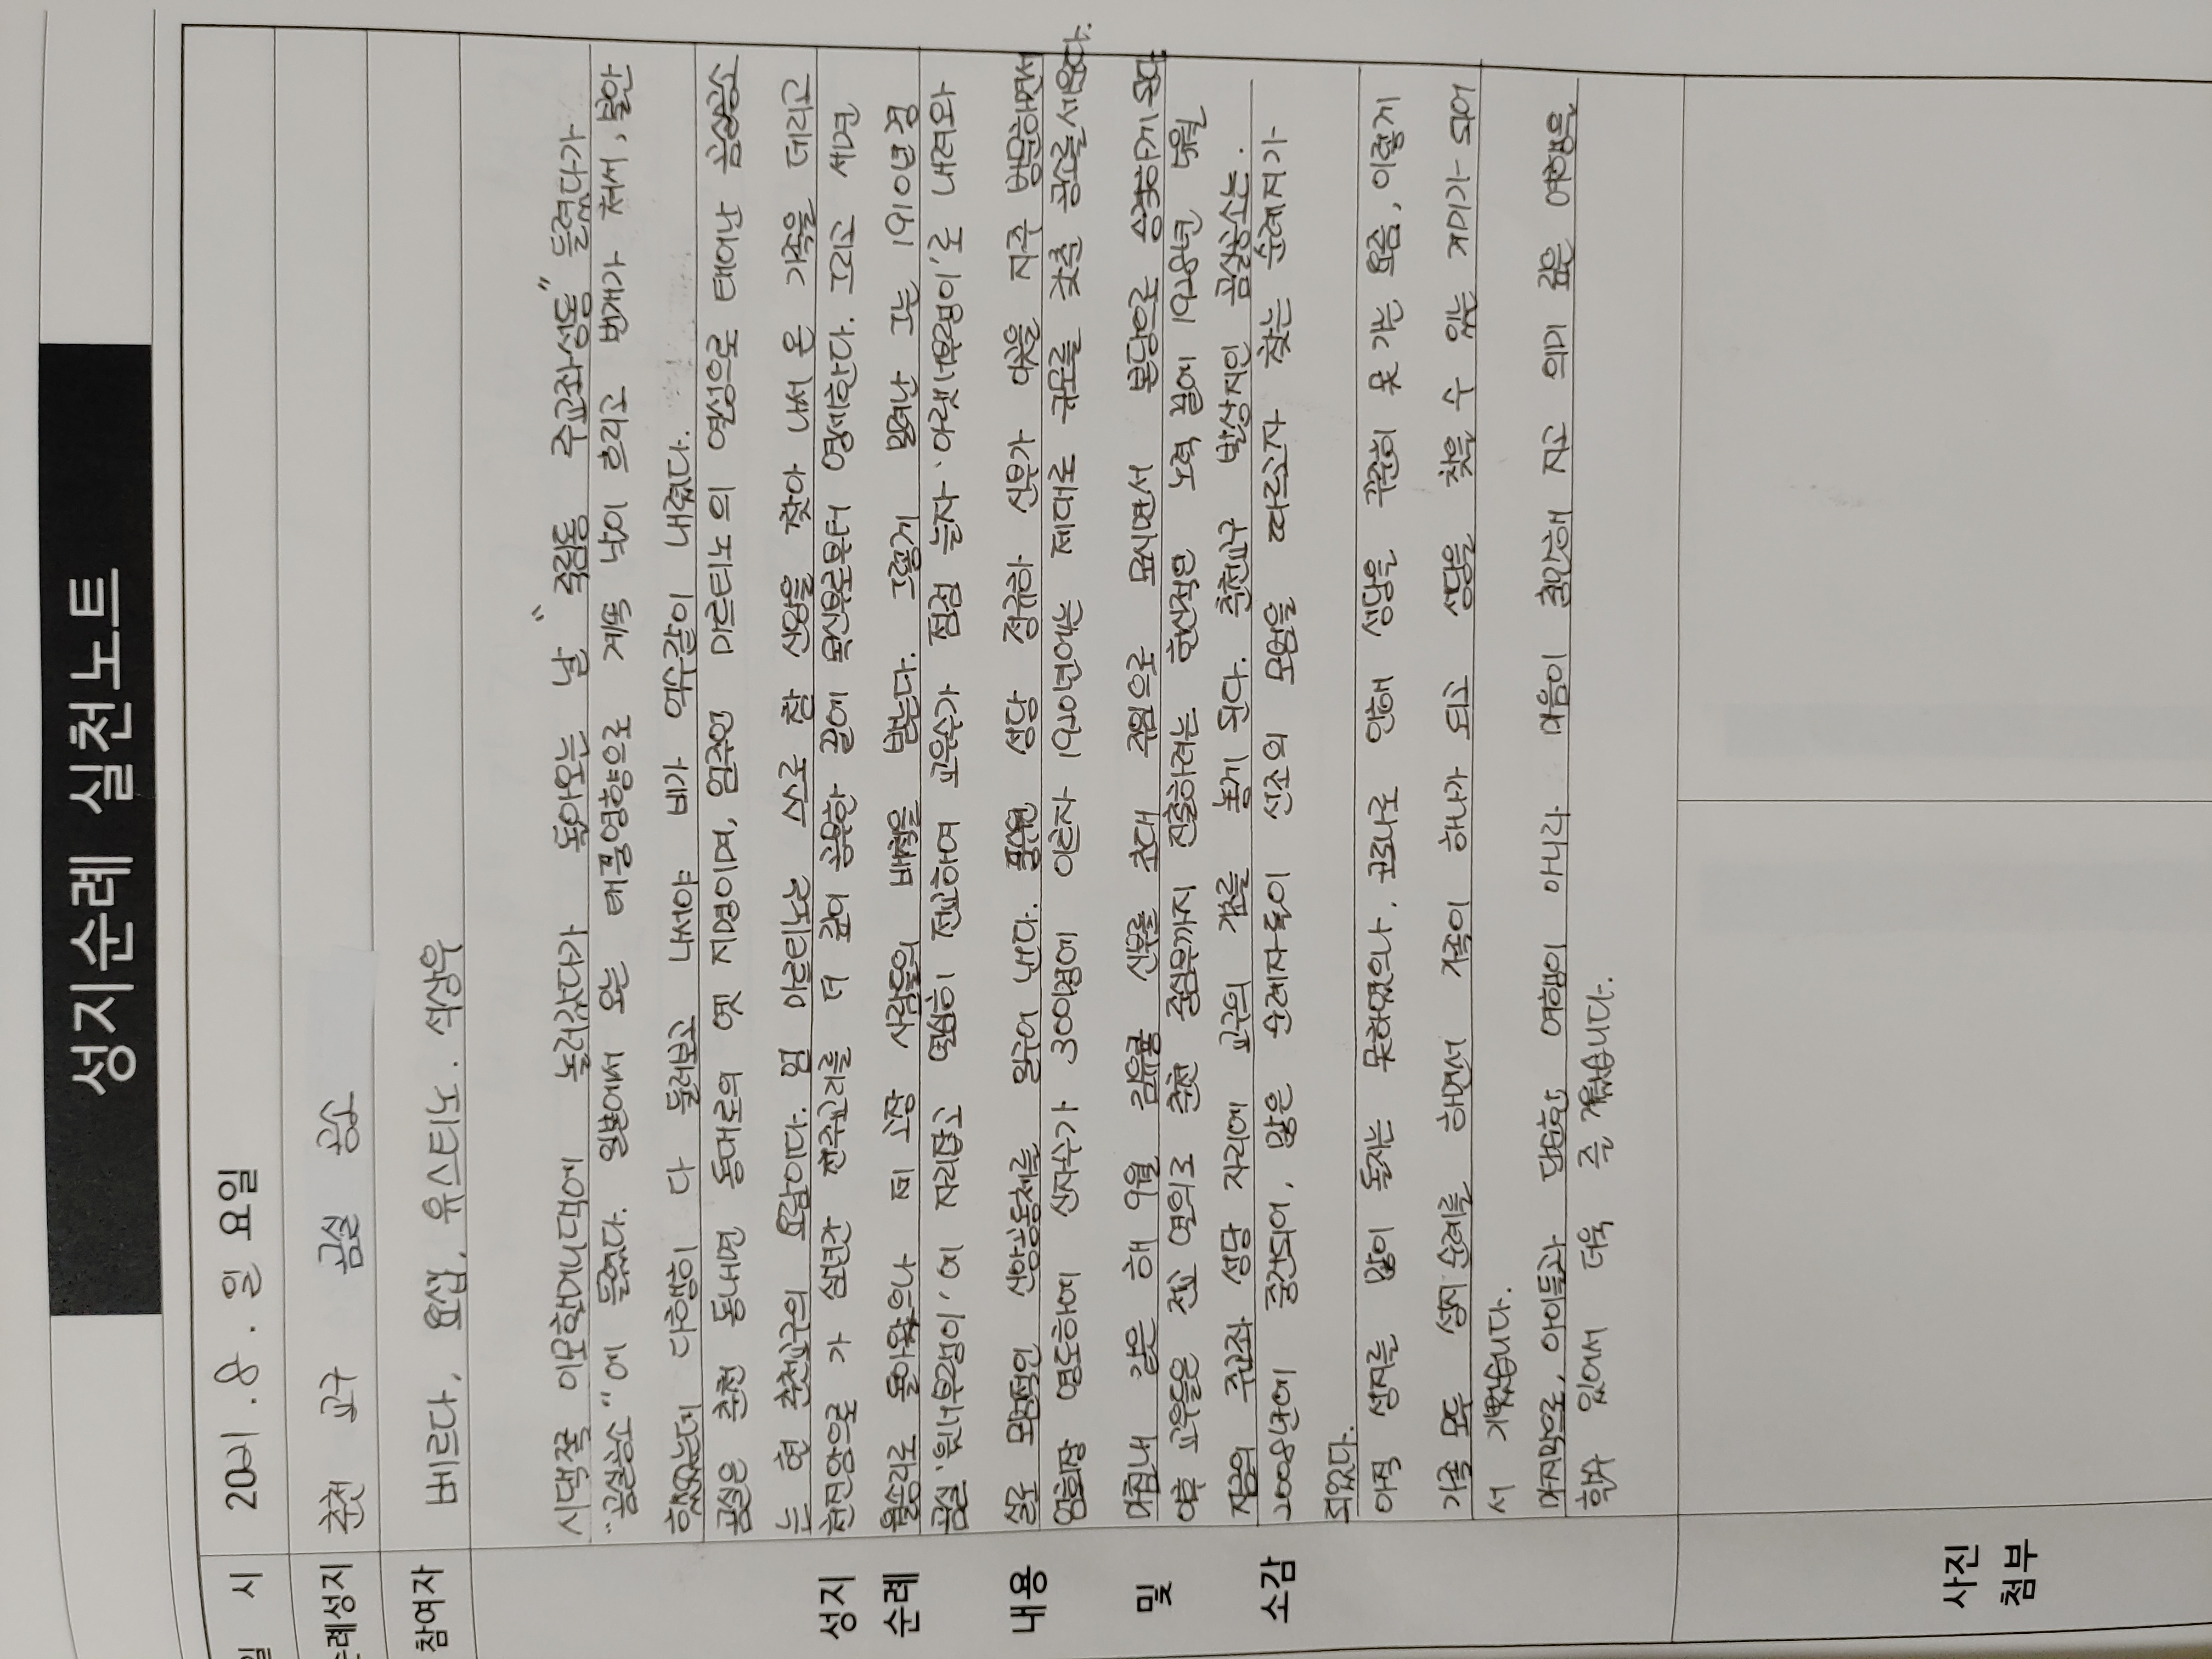 성지순례 실천노트
일 시 2021 . 8 . 일 요일
순례성지 춘천 교구 곰실 공소
참여자 베르다, 요셉, 유스티노. 석상우
시댁쪽 이모할머니댁에 놀러갔다가 돌아오는 날 "죽림동 주교좌성동" 들렸다가
"곰실공소"에 들렸다. 일본에서 오는 태풍영향으로 계속 날이 흐리고 번개가 쳐서, 불안
했었는데 다행히 다 둘러보고 나서야 비가 억수같이 내렸다.
곰실은 춘천 동내면 동내로의 옛 지명이며, 엄주언 마르티노의 열성으로 태어난 곰실공소
는 현 춘천교구의 요람이다. 엄 마르티노는 스스로 참 신앙을 찾아 나서 온 가족을 데리고
성지 천진암으로 가 삼년간 천주교리를 더 깊이 공부한 끝에 목신부로부터 영세한다. 그리고 세면
순례 월송리로 돌아왔으나 제 고장 사람들의 배척을 받는다. 그렇게 밀려난 그는 1910년경
곰실 '윗너부랭이'에 자리잡고 열심히 전교하여 교우수가 점점 늘자 '아랫너부랭이'로 내려와
내용 실로 모범적인 신앙공동체를 일구어 낸다. 풍수원 성당 정규하 신부가 이곳을 자주 방문하면서
엄회장 영도하에 신자수가 300명에 이르자 1920년에는 제대로 규모를 갖춘 공소를 세운다.
및 마침내 같은 해 9월 김유룡 신부를 초대 주임으로 모시면서 본당으로 승격하게 된다
이후 교우들은 전교 열의로 춘천 중심부까지 진출하려는 헌신적인 노력 끝에 1928년 5월
지금의 주교좌 성당 자리에 교구의 기초를 놓게 된다. 춘천교구 발상지인 곰실공소는.
소감 2008년에 중건되어, 많은 순례자들이 선조의 모범을 따르고자 찾는 순례지가
되었다.
아직 성지를 많이 돌지는 못하였으나, 코로나로 인해 성당을 꾸준히 못 가는 요즘, 이렇게
가족 모두 성지 순례를 하면서 가족이 하나가 되고 성당을 찾을 수 있는 계기가 되어
서 기뻤습니다.
마지막으로, 아이들과 단순한 여행이 아니라 마음이 편안해 지고 의미 깊은 여행을
할수 있어서 더욱 즐거웠습니다.
사진
첨부